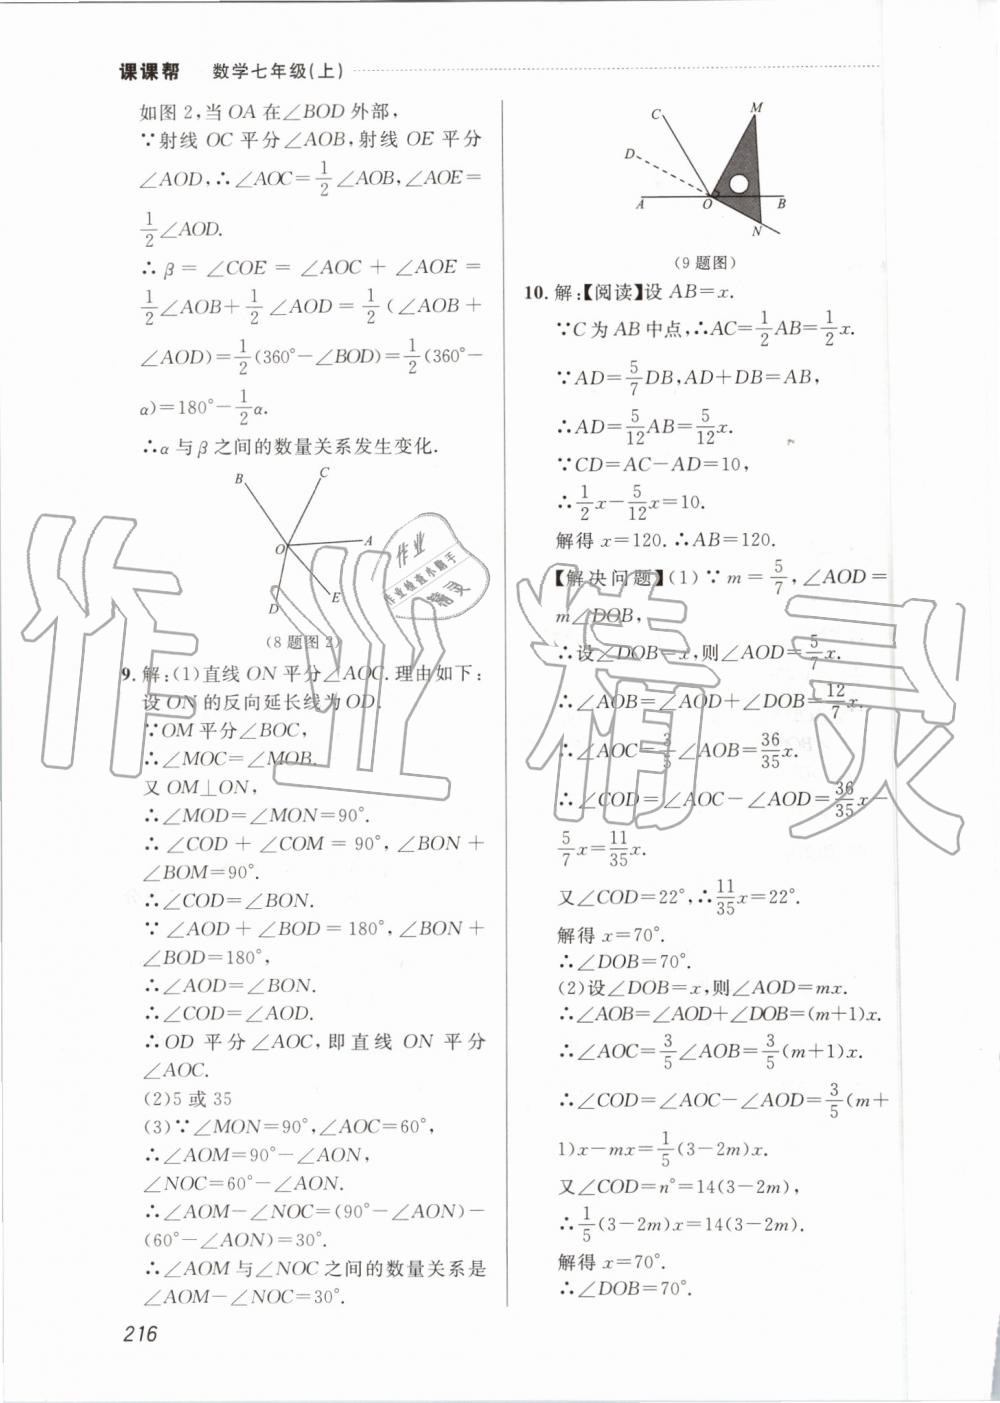 课课帮 数学七年级(上)
如图 2,当 OA 在∠BOD 外部,
∵射线 OC 平分∠AOB,射线 OE 平分
∠AOD,∴∠AOC=1/2∠AOB,∠AOE=
1/2∠AOD.
∴β=∠COE=∠AOC+∠AOE=
1/2∠AOB+1/2∠AOD=1/2(∠AOB+
∠AOD)=1/2(360°-∠BOD)=1/2(360°-
α)=180°-1/2α.
∴α 与 β 之间的数量关系发生变化.
B
C
O
A
D
E
(8 题图 2)
9. 解:(1)直线 ON 平分∠AOC.理由如下:
设 ON 的反向延长线为 OD.
∵OM 平分∠BOC,
∴∠MOC=∠MOB.
又 OM⊥ON,
∴∠MOD=∠MON=90°.
∴∠COD+∠COM=90°,∠BON+
∠BOM=90°.
∴∠COD=∠BON.
∵∠AOD+∠BOD=180°,∠BON+
∠BOD=180°,
∴∠AOD=∠BON.
∴∠COD=∠AOD.
∴OD 平分∠AOC,即直线 ON 平分
∠AOC.
(2)5 或 35
(3)∵∠MON=90°,∠AOC=60°,
∴∠AOM=90°-∠AON,
∠NOC=60°-∠AON.
∴∠AOM-∠NOC=(90°-∠AON)-
(60°-∠AON)=30°.
∴∠AOM 与∠NOC 之间的数量关系是
∠AOM-∠NOC=30°.
216
C
M
D
A
O
B
N
(9 题图)
10. 解:【阅读】设 AB=x.
∵C 为 AB 中点,∴AC=1/2AB=1/2x.
∵AD=5/7DB,AD+DB=AB,
∴AD=5/12AB=5/12x.
∵CD=AC-AD=10,
∴1/2x-5/12x=10.
解得 x=120.∴AB=120.
【解决问题】(1)∵m=5/7,∠AOD=
m∠DOB,
∴设∠DOB=x,则∠AOD=5/7x.
∴∠AOB=∠AOD+∠DOB=12/7x.
∴∠AOC=3/5∠AOB=36/35x.
∴∠COD=∠AOC-∠AOD=36/35x-
5/7x=11/35x.
又∠COD=22°,∴11/35x=22°.
解得 x=70°.
∴∠DOB=70°.
(2)设∠DOB=x,则∠AOD=mx.
∴∠AOB=∠AOD+∠DOB=(m+1)x.
∴∠AOC=3/5∠AOB=3/5(m+1)x.
∴∠COD=∠AOC-∠AOD=3/5(m+
1)x-mx=1/5(3-2m)x.
又∠COD=n°=14(3-2m),
∴1/5(3-2m)x=14(3-2m).
解得 x=70°.
∴∠DOB=70°.
作业精灵
作业
作业检查小助手
精灵